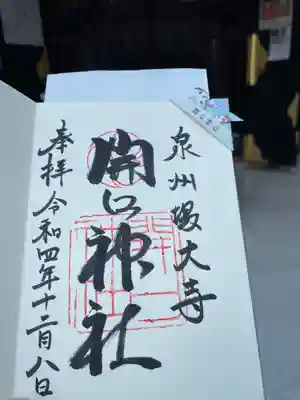 泉州堺大寺
開口神社
奉拝 令和四年十二月八日